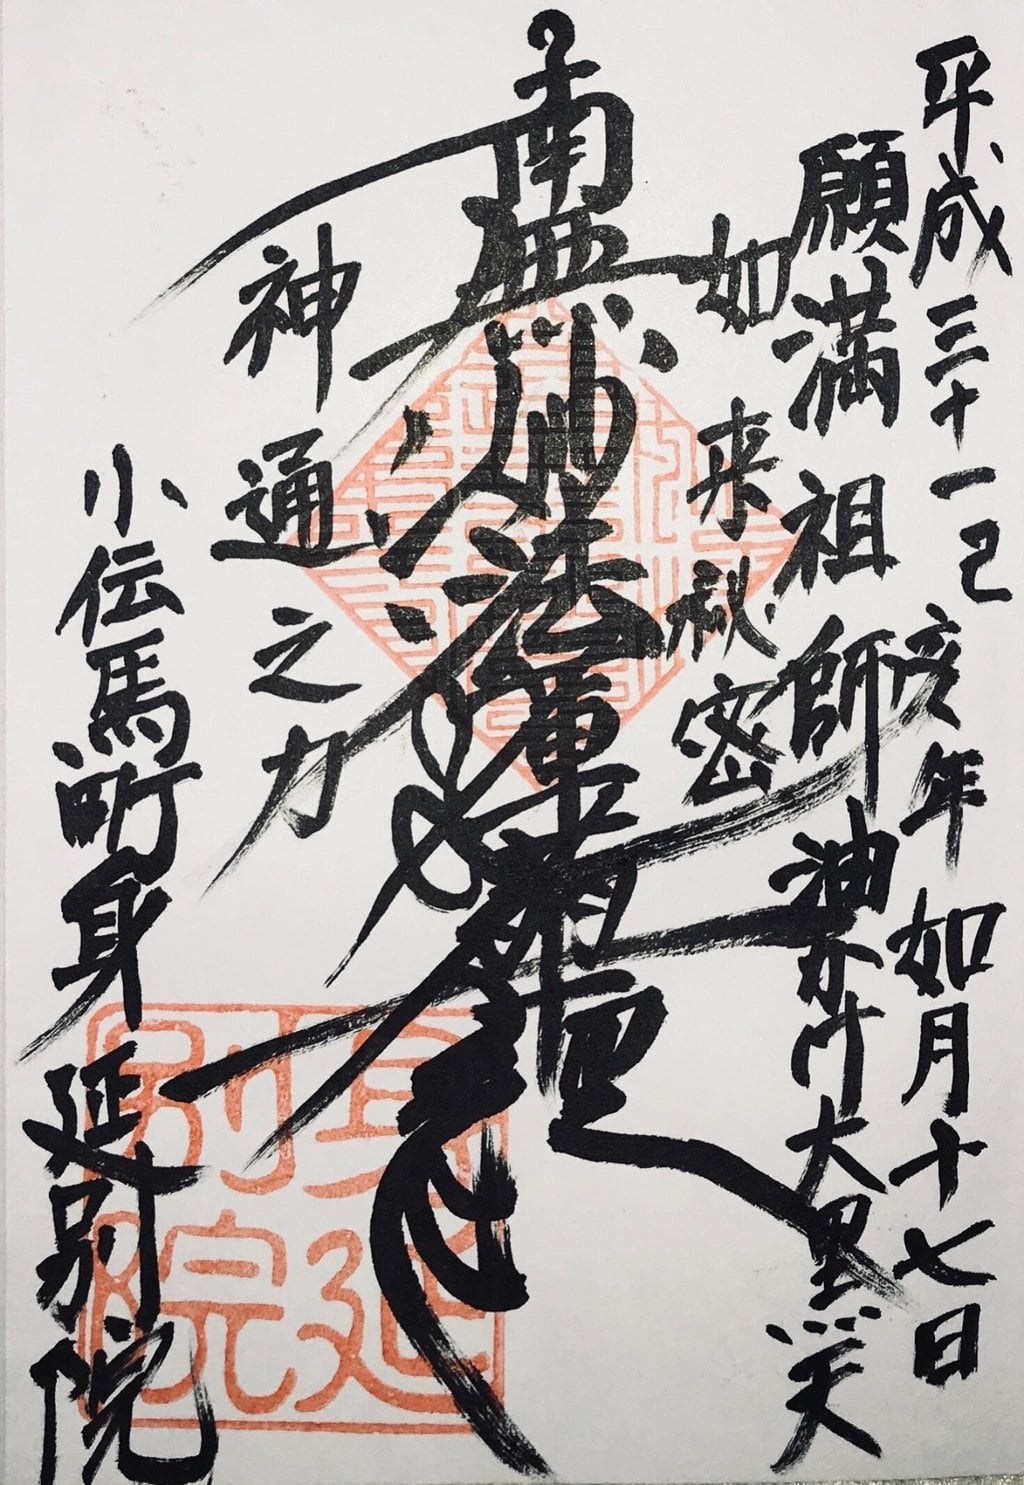 平成三十一己亥年 如月十七日
願満祖師 油かけ大黒天
如来秘密
南無妙法蓮華経
神通之力
小伝馬町身延別院
身延
別院